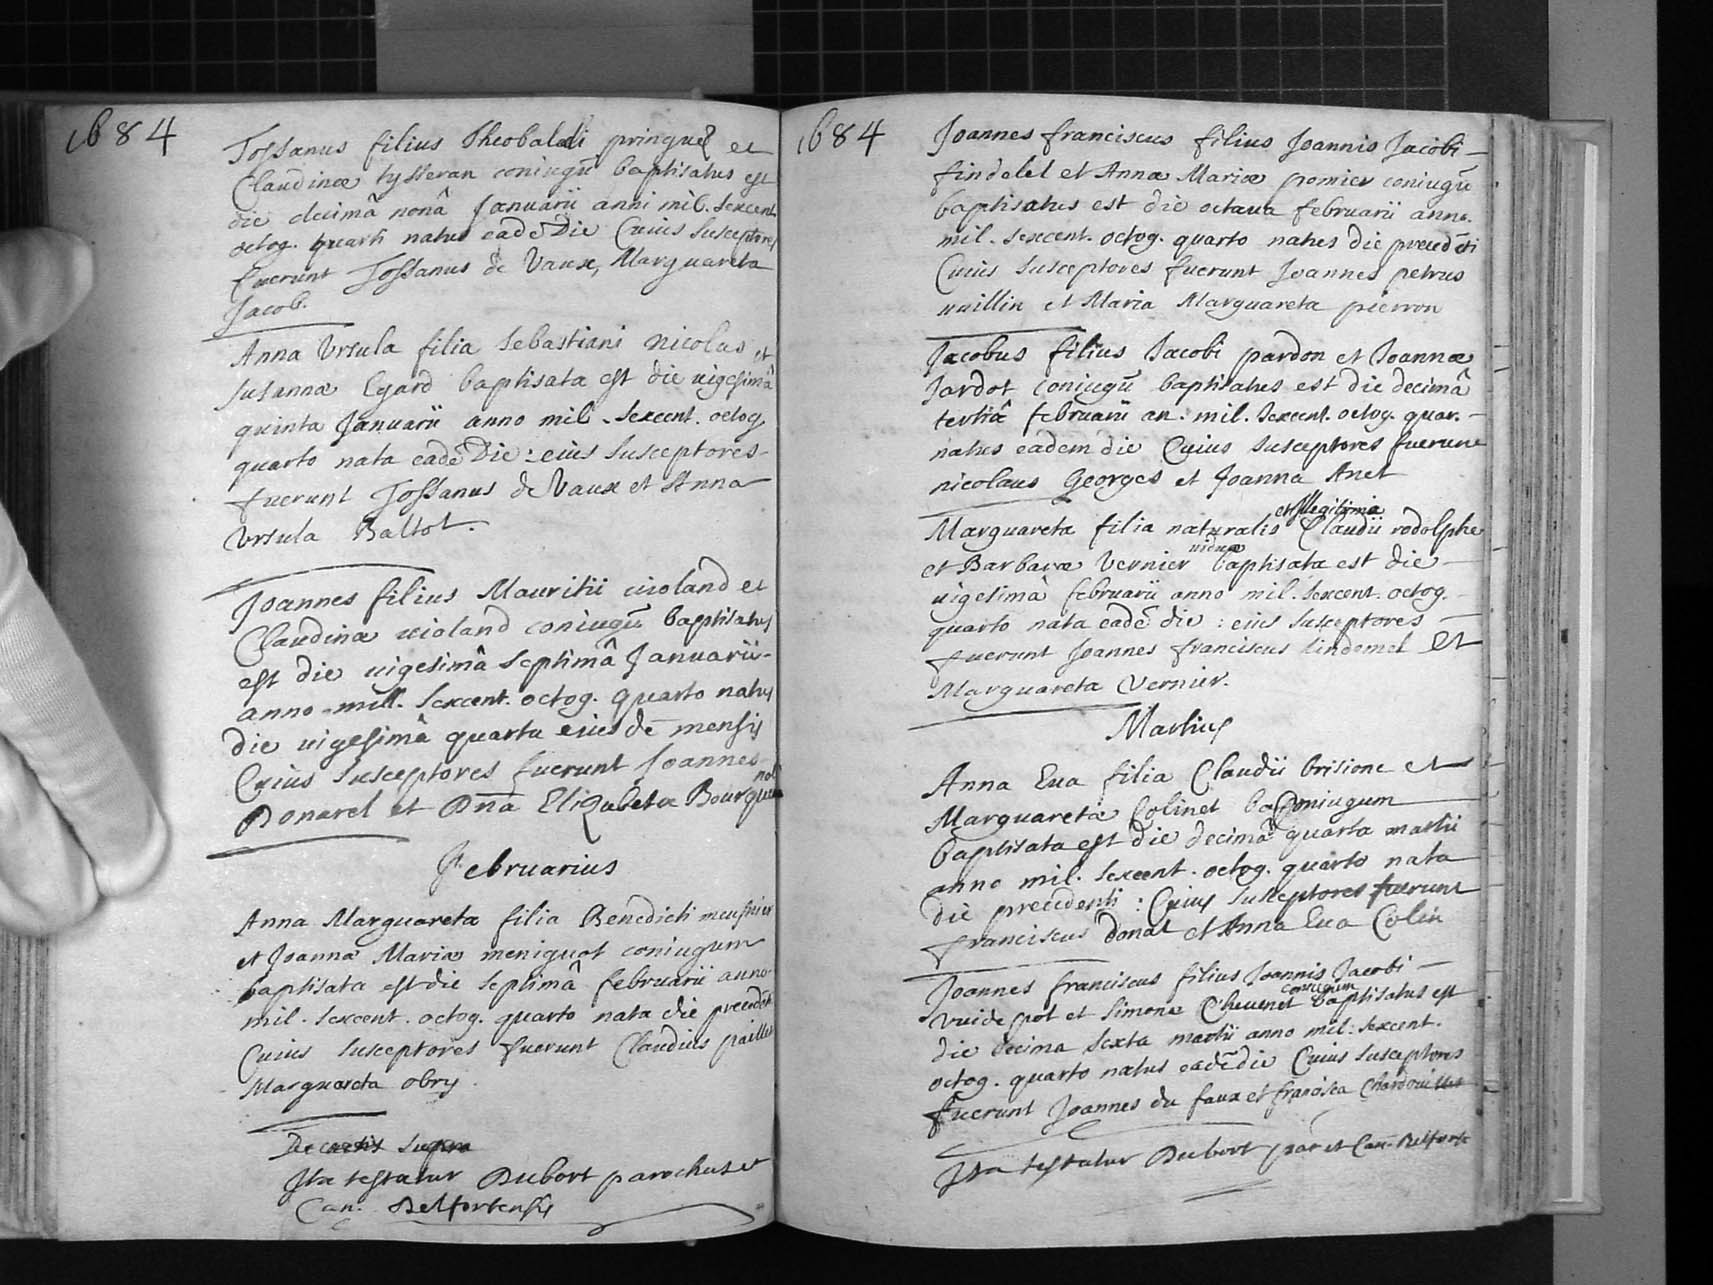 1684
Tossanus filius Theobaldi pringuel et
Claudinæ tysseran coniugũ baptisatus est
die decimâ nonâ Januarii anni mil. sexcent.
octog. quarti natus eadẽ Die Cuius susceptores
fuerunt Tossanus de Vaux, Marguareta
Jacob.
Anna Ursula filia Sebastiani nicolas et
susannæ Cyard baptisata est die uigesimâ
quinta Januarii anno mil. sexcent. octog
quarto nata eadẽ Die : eius susceptores
fuerunt Tossanus de Vaux et Anna
Ursula Baltot.
Joannes filius Mauritii uioland et
Claudinæ uioland coniugũ baptisatus
est die uigesimâ septimâ Januarii
anno mill. sexcent. octog. quarto natus
die uigesimâ quarta eiusdẽ mensis
Cuius susceptores fuerunt Joannes
Donarel et Dña Elizabeta Bourquenol
Februarius
Anna Marguareta filia Benedicti meusnier
et Joannæ Mariæ meniguot coniugum
baptisata est die septimâ februarii anno
mil. sexcent. octog. quarto nata die precedẽti
Cuius susceptores fuerunt Claudius paillet
Marguareta obry.
supra
Ita testatur Dubort parochus et
Can. Belfortensis
1684
Joannes franciscus filius Joannis Jacobi
findelel et Annæ Mariæ pomier coniugũ
baptisatus est die octaua februarii anno.
mil. sexcent. octog. quarto natus die precedẽti
Cuius susceptores fuerunt Joannes petrus
uuillin et Maria Marguareta pierron
Jacobus filius Jacobi pardon et Joannæ
Jardot coniugũ baptisatus est die decimâ
tertiâ februarii an. mil. sexcent. octog. quar.
natus eadem die Cuius susceptores fuerunt
nicolaus Georges et Joanna Anet
et Illegitima
Marguareta filia naturalis Claudii rodolphe
uiduæ
et Barbaræ Vernier baptisata est die
uigesimâ februarii anno mil. sexcent. octog.
quarto nata eadẽ die : eius susceptores
fuerunt Joannes franciscus lindemel et
Marguareta Vernier.
Martius
Anna Eua filia Claudii brisione et
Marguaretæ Colinet coniugum
baptisata est die decimâ quarta martii
anno mil. sexcent. octog. quarto nata
die precedenti : Cuius susceptores fuerunt
franciscus donat et Anna Eua Colin
Joannes franciscus filius Joannis Jacobi
coniugum
vuide pot et Simonæ Cheuenet baptisatus est
die decima sexta martii anno mil. sexcent.
octog. quarto natus eadẽ die Cuius susceptores
fuerunt Joannes du faux et francisca Chardouillet
Ita testatur Dubort par et Can. Belfort